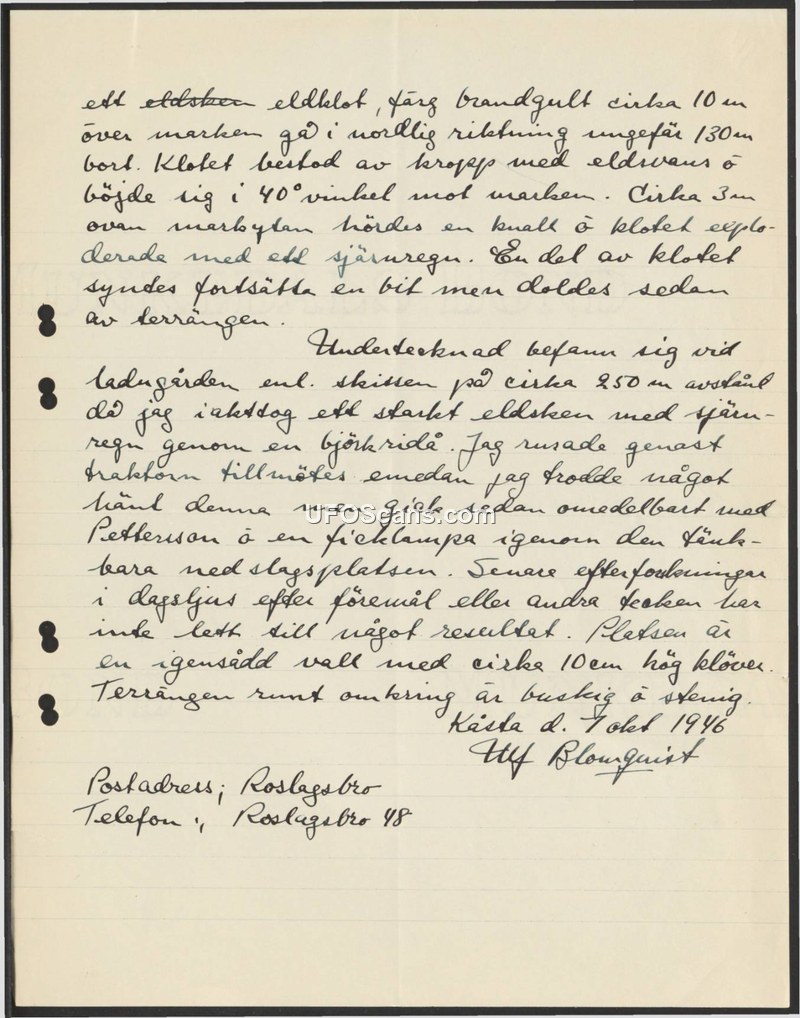 ett eldsken eldklot, färg brandgult cirka 10 m
över marken gå i nordlig riktning ungefär 130 m
bort. Klotet bestod av kropp med eldsvans o
böjde sig i 40° vinkel mot marken. Cirka 3 m
ovan markytan hördes en knall o klotet explo-
derade med ett sjärnregn. En del av klotet
syntes fortsätta en bit men doldes sedan
av terrängen.
Undertecknad befann sig vid
ladugården enl. skissen på cirka 250 m avstånd
då jag iakttog ett starkt eldsken med sjärn-
regn genom en björkridå. Jag rusade genast
traktorn tillmötes emedan jag trodde något
hänt denna men gick sedan omedelbart med
UFOScans.com
Pettersson o en ficklampa igenom den tänk-
bara nedslagsplatsen. Senare efterforskningar
i dagsljus efter föremål eller andra tecken har
inte lett till något resultat. Platsen är
en igensådd vall med cirka 10 cm hög klöver.
Terrängen runt omkring är buskig o stenig.
Kåsta d. 7 okt 1946
Ulf Blomquist
Postadress; Roslagsbro
Telefon ; Roslagsbro 48